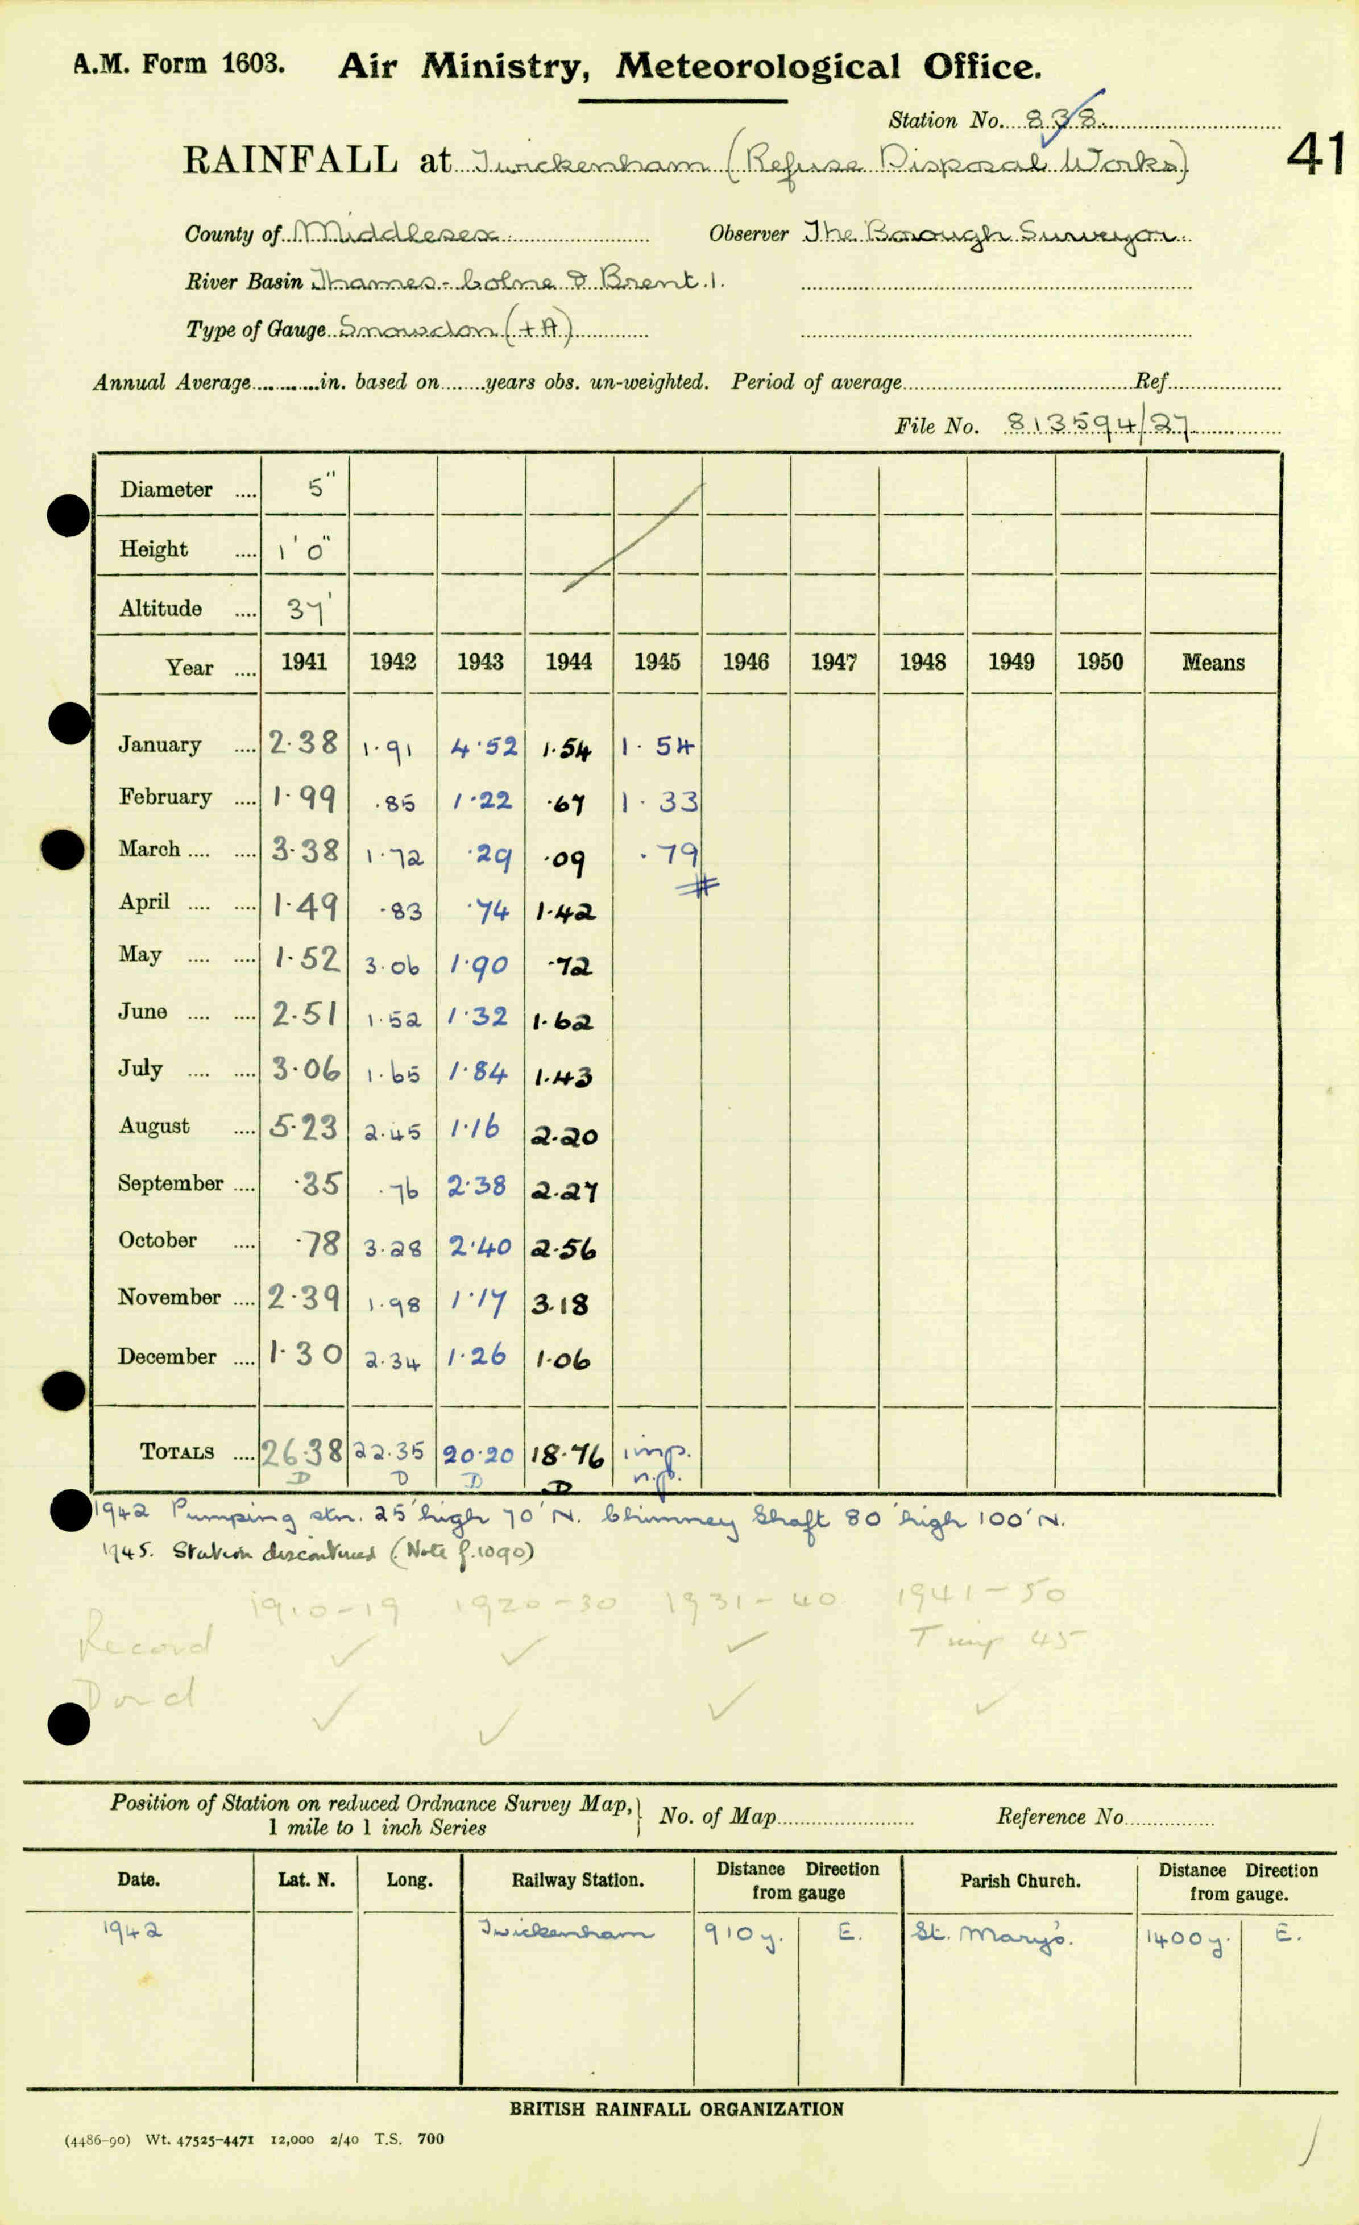 A.M. Form 1603. Air Ministry, Meteorological Office.
Station No. 838
RAINFALL at Twickenham (Refuse Disposal Works) 41
County of Middlesex. Observer The Borough Surveyor.
River Basin Thames - Colne & Brent. 1.
Type of Gauge Snowdon (+A)
Annual Average in. based on years obs. un-weighted. Period of average Ref
File No. 813594/27
Diameter .... 5"
Height .... 1' 0"
Altitude .... 37'
Year .... 1941 1942 1943 1944 1945 1946 1947 1948 1949 1950 Means
January .... 2·38 1·91 4·52 1·54 1·54
February .... 1·99 ·85 1·22 ·67 1·33
March .... .... 3·38 1·72 ·29 ·09 ·79
April .... .... 1·49 ·83 ·74 1·42
May .... .... 1·52 3·06 1·90 ·72
June .... .... 2·51 1·52 1·32 1·62
July .... .... 3·06 1·65 1·84 1·43
August .... 5·23 2·45 1·16 2·20
September .... ·35 ·76 2·38 2·27
October .... ·78 3·28 2·40 2·56
November .... 2·39 1·98 1·17 3·18
December .... 1·30 2·34 1·26 1·06
TOTALS .... 26·38 22·35 20·20 18·76 imp.
D D D D n.p.
1942 Pumping stn. 25' high 70' N. Chimney Shaft 80' high 100' N.
1945. Station discontinued (Note f.1090)
1910-19 1920-30 1931-40 1941-50
Record ✓ ✓ ✓ T imp 45
D and ✓ ✓ ✓ ✓
Position of Station on reduced Ordnance Survey Map, 1 mile to 1 inch Series } No. of Map Reference No
Date. Lat. N. Long. Railway Station. Distance Direction from gauge Parish Church. Distance Direction from gauge.
1942 Twickenham 910 y. E. St. Mary's. 1400 y. E.
BRITISH RAINFALL ORGANIZATION
(4486-90) Wt. 47525-4471 12,000 2/40 T.S. 700